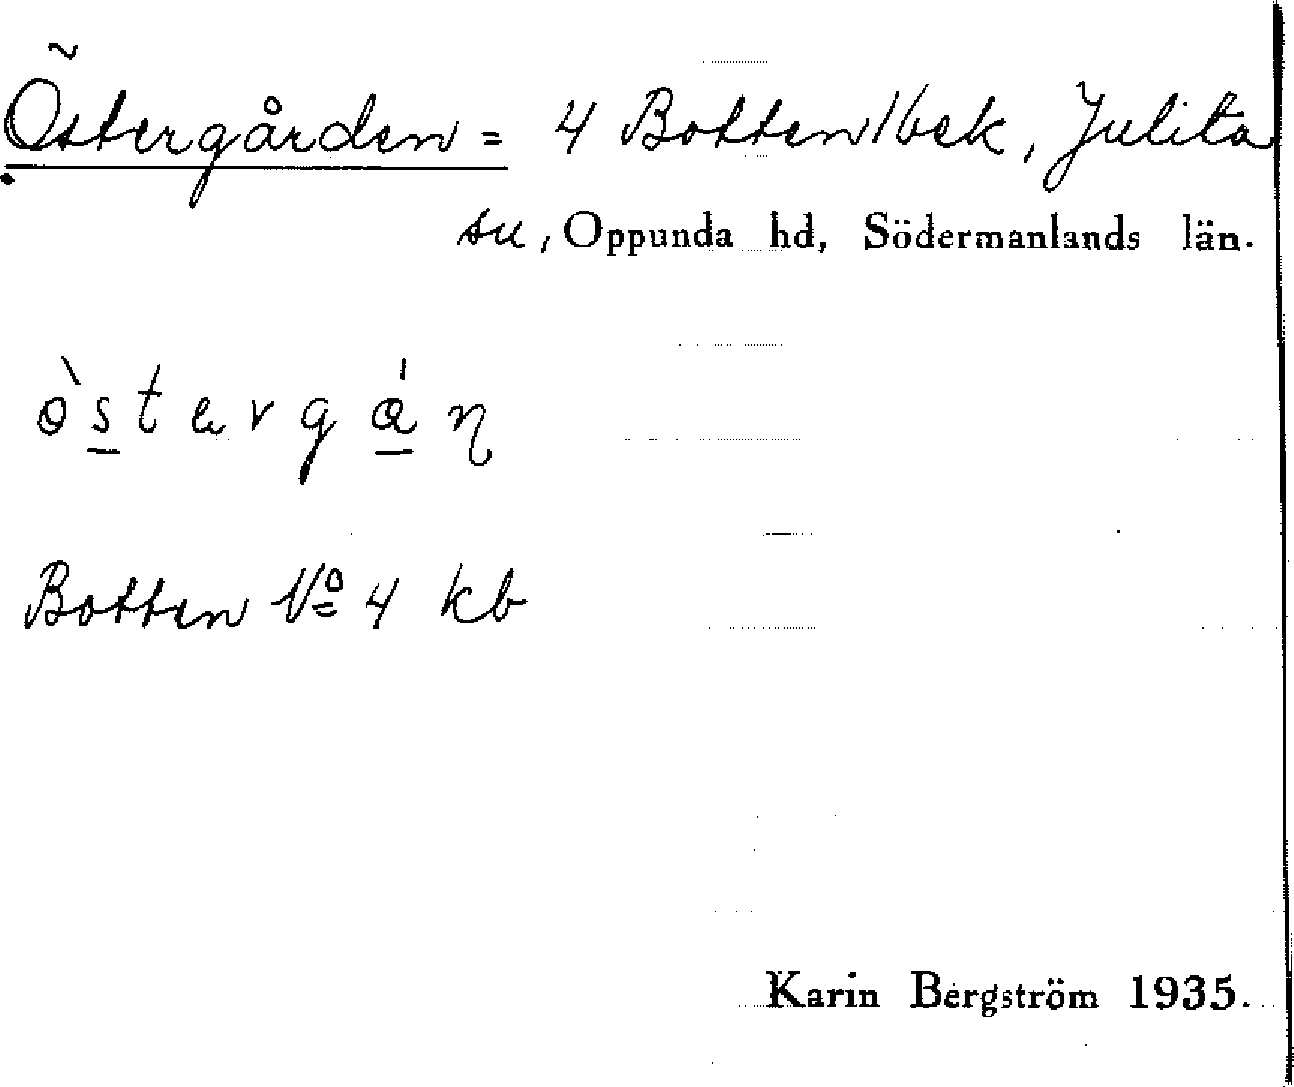 Östergården = 4 Botten/bek, Julita
sn, Oppunda hd, Södermanlands län.
Botten No 4 kb
Karin Bergström 1935.